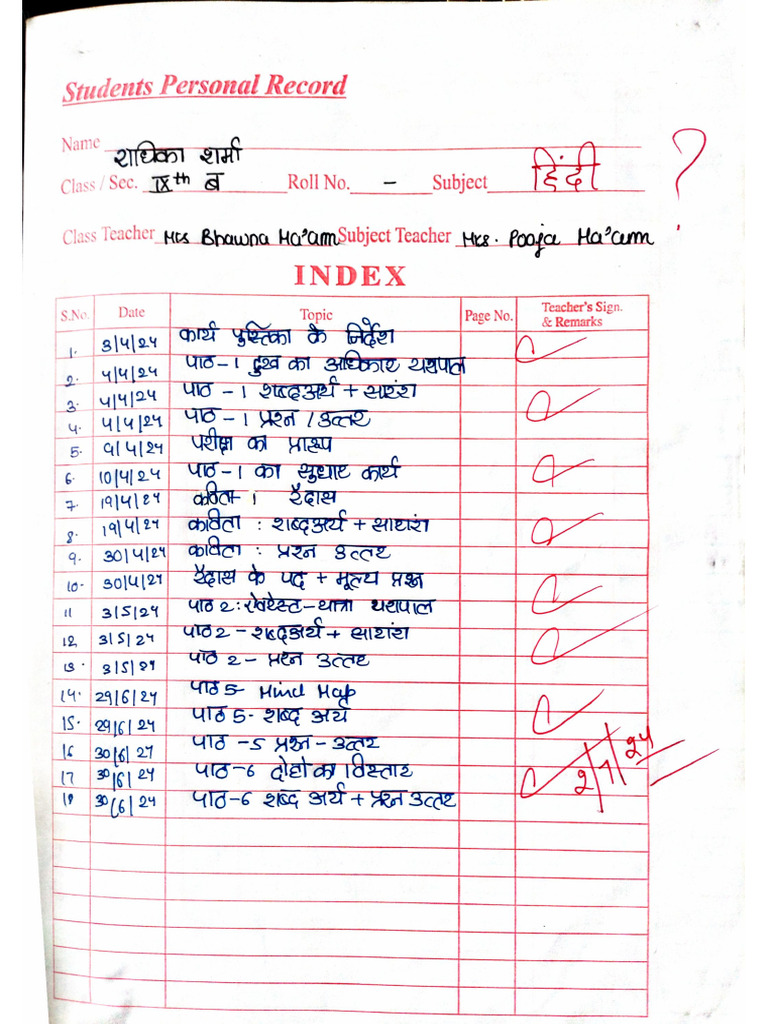 Students Personal Record
Name राधिका शर्मा
Class / Sec. IXth ब Roll No. - Subject हिंदी ?
Class Teacher Mrs Bhawna Ma'am Subject Teacher Mrs. Pooja Ma'am
INDEX
S.No. Date Topic Page No. Teacher's Sign. & Remarks
1. 3/4/24 कार्य पुस्तिका के निर्देश
2. 4/4/24 पाठ-1 दुख का अधिकार यशपाल
3. 4/4/24 पाठ-1 शब्दअर्थ + सारांश
4. 4/4/24 पाठ-1 प्रश्न / उत्तर
5. 9/4/24 परीक्षा का प्रारूप
6. 10/4/24 पाठ-1 का सुधार कार्य
7. 19/4/24 कविता 1 रैदास
8. 19/4/24 कविता : शब्दअर्थ + सारांश
9. 30/4/24 कविता : प्रश्न उत्तर
10. 30/4/24 रैदास के पद + मूल्य प्रश्न
11 3/5/24 पाठ 2: ऐवरेस्ट-यात्रा यशपाल
12 3/5/24 पाठ 2 - शब्दअर्थ + सारांश
13. 3/5/24 पाठ 2 - प्रश्न उत्तर
14. 29/6/24 पाठ 5- Mind Map
15. 29/6/24 पाठ 5- शब्द अर्थ
16 30/6/24 पाठ -5 प्रश्न - उत्तर
17 30/6/24 पाठ-6 दोहो का विस्तार 2/7/24
18 30/6/24 पाठ-6 शब्द अर्थ + प्रश्न उत्तर